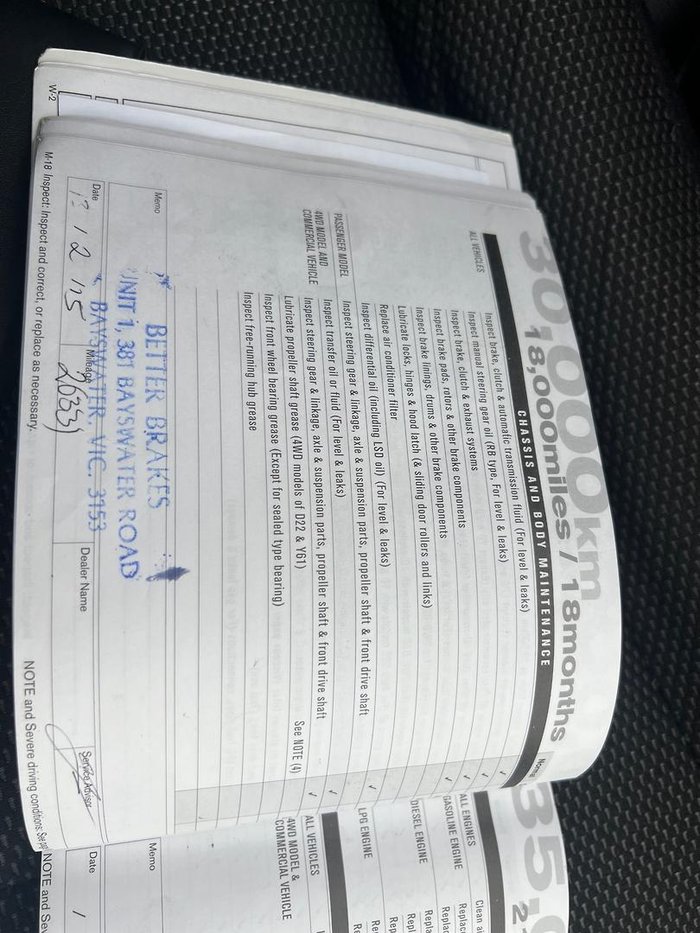 30,000km
18,000miles / 18months
Normal
CHASSIS AND BODY MAINTENANCE
ALL VEHICLES
Inspect brake, clutch & automatic transmission fluid (For level & leaks)
Inspect manual steering gear oil (RB type, For level & leaks)
Inspect brake, clutch & exhaust systems
Inspect brake pads, rotors & other brake components
Inspect brake linings, drums & other brake components
Lubricate locks, hinges & hood latch (& sliding door rollers and links)
Replace air conditioner filter
Inspect differential oil (including LSD oil) (For level & leaks)
PASSENGER MODEL
Inspect steering gear & linkage, axle & suspension parts, propeller shaft & front drive shaft
4WD MODEL AND COMMERCIAL VEHICLE
Inspect transfer oil or fluid (For level & leaks)
Inspect steering gear & linkage, axle & suspension parts, propeller shaft & front drive shaft
Lubricate propeller shaft grease (4WD models of D22 & Y61) See NOTE (4)
Inspect front wheel bearing grease (Except for sealed type bearing)
Inspect free-running hub grease
Memo
BETTER BRAKES
UNIT 1, 381 BAYSWATER ROAD
BAYSWATER, VIC. 3153
Date
Mileage
Dealer Name
Service Advisor
M-18 Inspect: Inspect and correct, or replace as necessary.
NOTE and Severe driving conditions:
W-2
35,
ALL ENGINES
Clean
GASOLINE ENGINE
DIESEL ENGINE
LPG ENGINE
ALL VEHICLES
4WD MODEL &
COMMERCIAL VEHICLE
Memo
Date
/
NOTE and